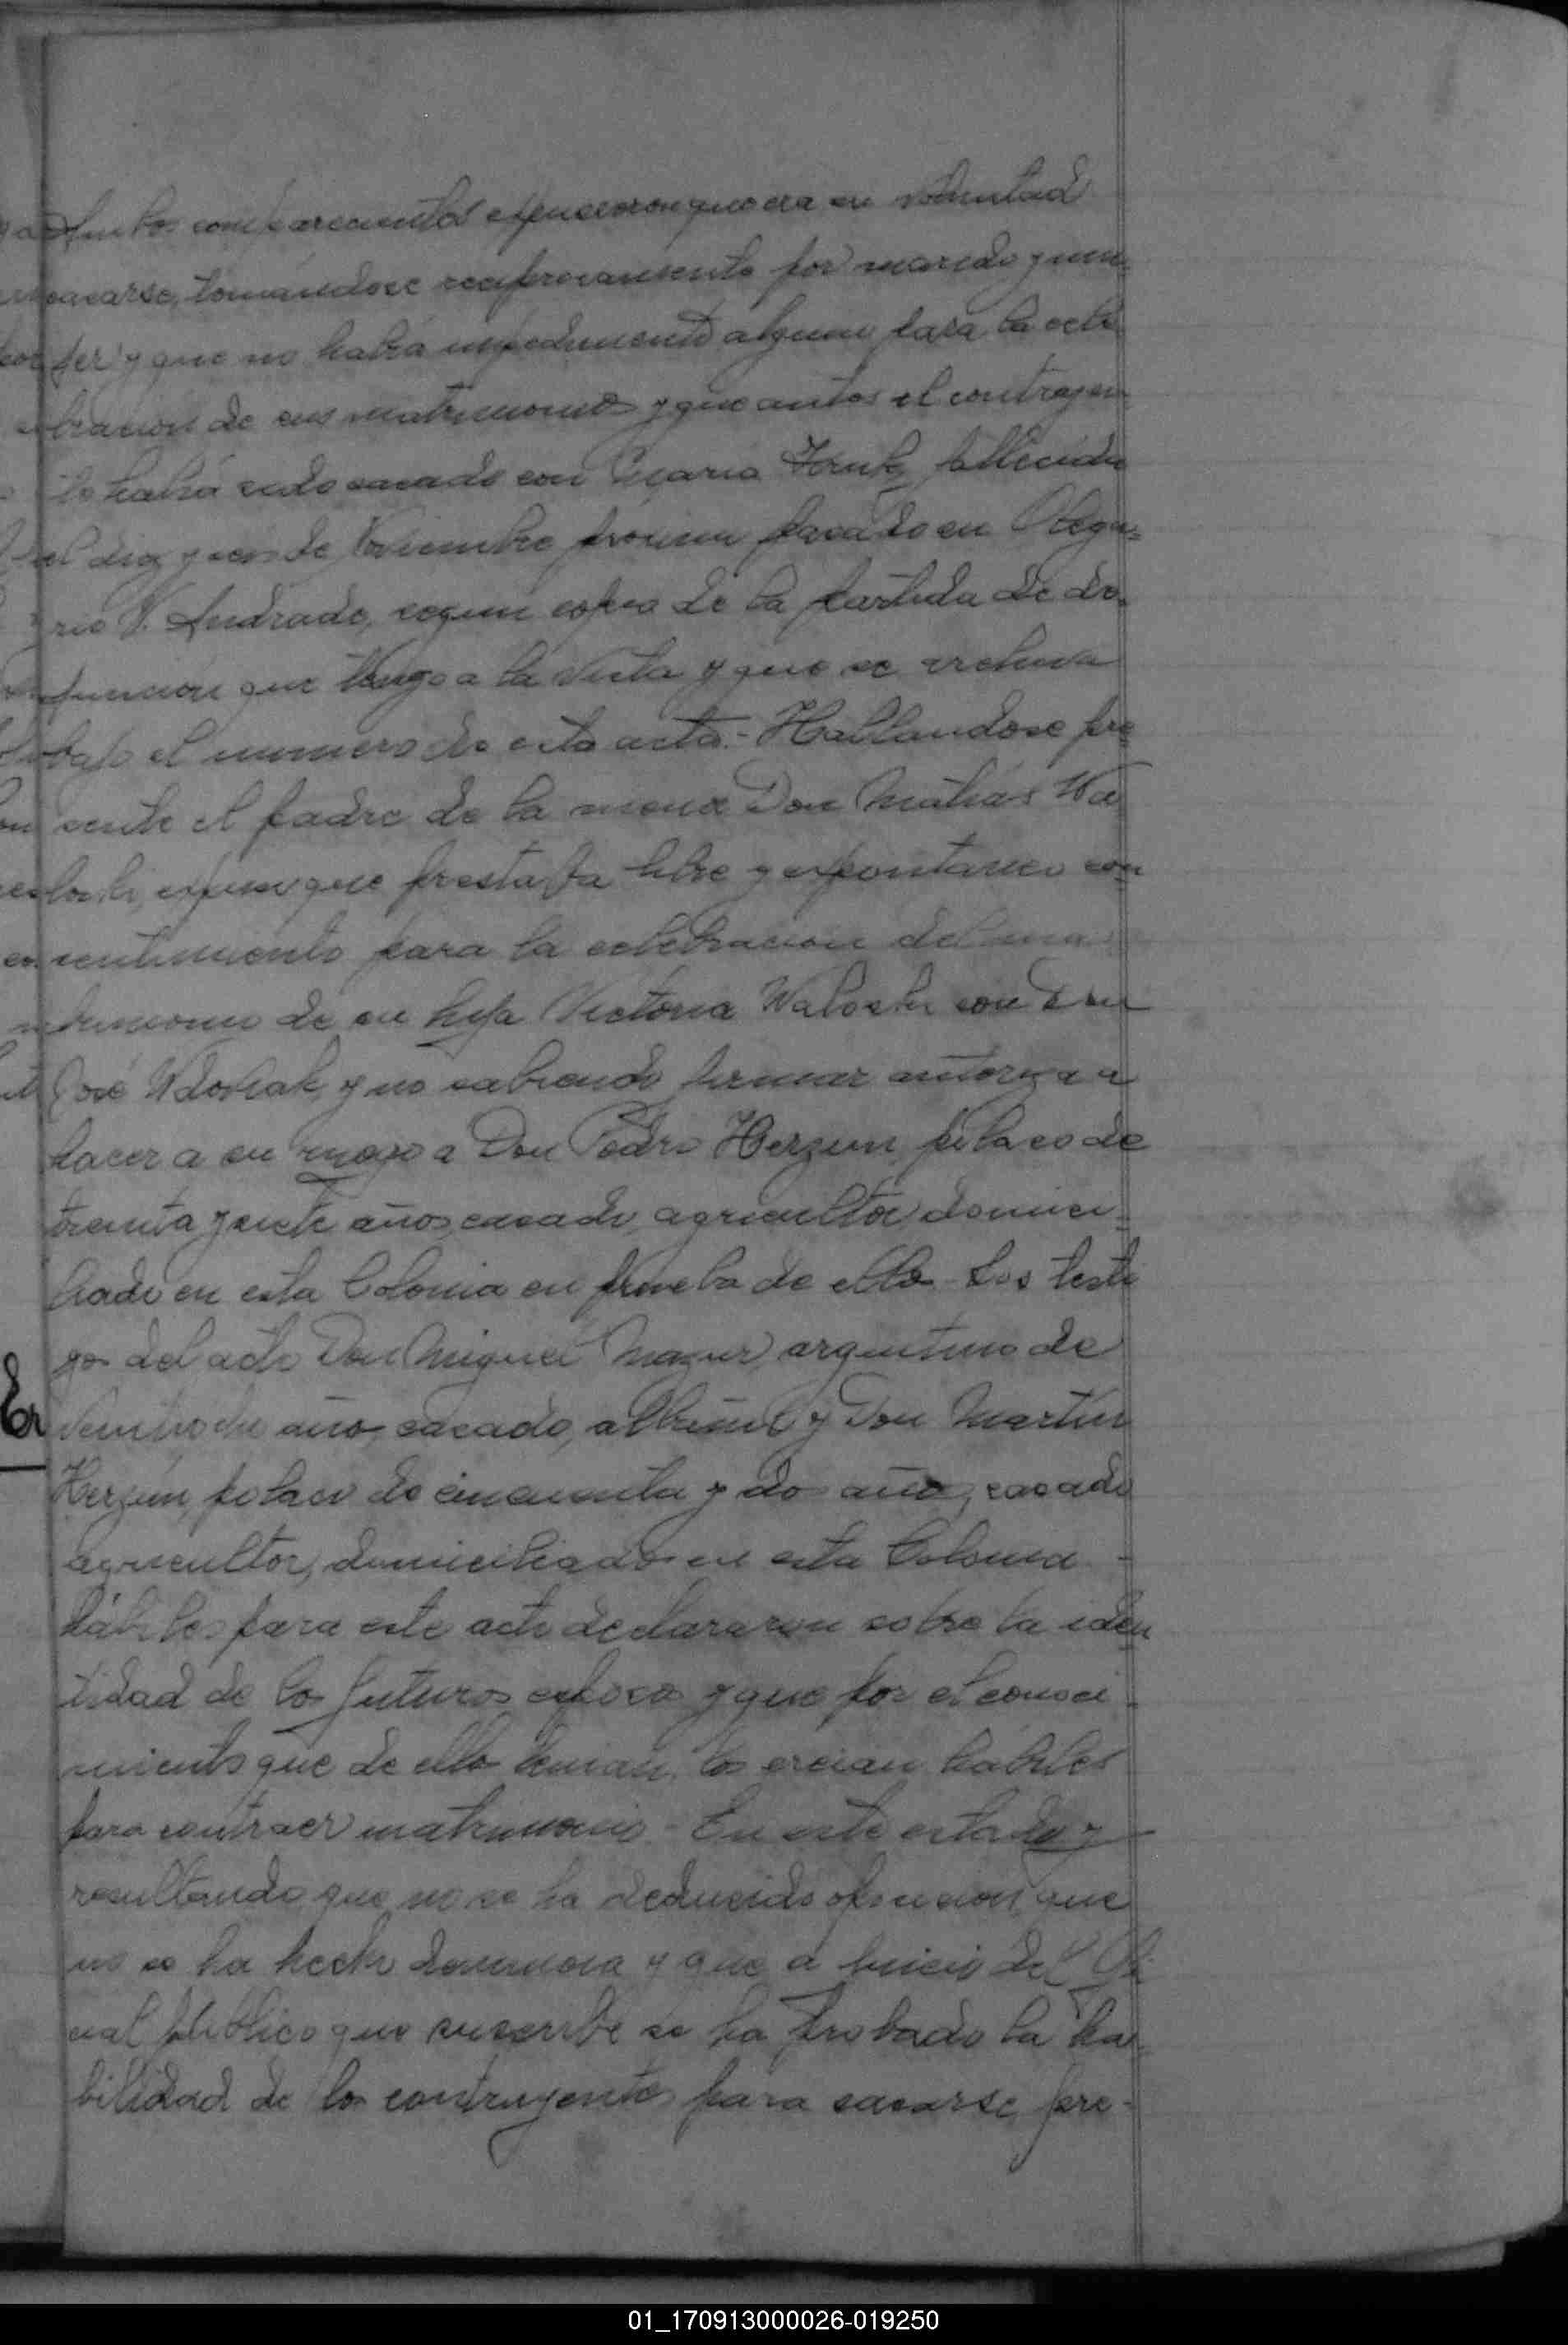 Ambos comparecientes expusieron que era su voluntad
casarse, tomándose recíprocamente por marido y mu=
jer y que no había impedimento alguno para la cele
bración de sus matrimonio y que antes el contrayen
te había sido casado con María Hauk, fallecida
el día y seis de Noviembre próximo pasado en Olega=
rio V. Andrade, según copia de la partida de de=
función que tengo a la vista y que se archiva
bajo el número de esta acta.- Hallandose pre
sente el padre de la menor Don Matías Wa
loski, expuso que prestaba libre y expontaneo con
sentimiento para la celebración del ma
trimonio de su hija Victoria Waloski con Don
José Wdoviak y no sabiendo firmar autoriza a
hacer a su ruego a Don Pedro Herzun, polaco de
treinta y siete años, casado, agricultor domici=
liado en esta Colonia en prueba de ello. Los testi
gos del acto Don Miguel Mazur, argentino de
veintiocho años, casado, albañil y Don Martin
Herzun, polaco de cincuenta y dos años, casado
agricultor, domiciliados en esta Colonia -
hábiles para este acto declararon sobre la iden
tidad de los futuros esposos y que por el conoci=
miento que de ellos tenian, los creian hábiles
para contraer matrimonio - En este estado y
resultando que no se ha deducido oposicion, que
no se ha hecho denuncia y que a juicio del Ofi
cial Público que suscribe se ha probado la ha=
bilidad de los contrayentes para casarse, pre-
Er
01_170913000026-019250